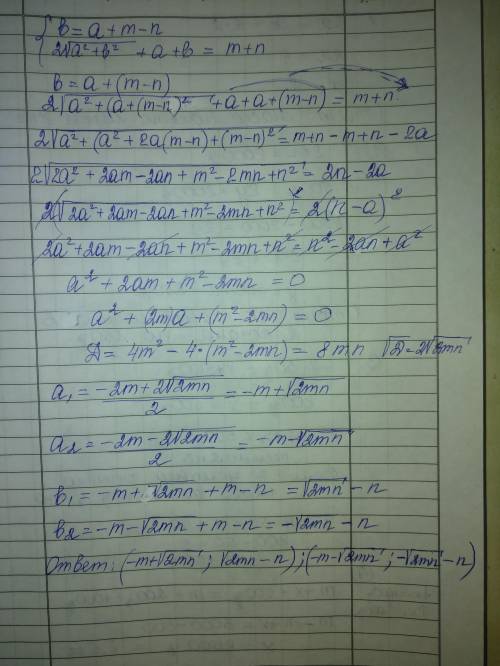 { b = a + m - n
2√(a²+b²) + a + b = m+n
b = a + (m-n)
2√(a² + (a+(m-n)² + a + a + (m-n) = m+n
2√(a² + (a² + 2a(m-n) + (m-n)²) = m+n-m+n-2a
2√(2a² + 2am - 2an + m² - 2mn + n²) = 2n - 2a
2√(2a² + 2am - 2an + m² - 2mn + n²) = 2(n-a)²
2a² + 2am - 2an + m² - 2mn + n² = n² - 2an + a²
a² + 2am + m² - 2mn = 0
a² + (2m)a + (m² - 2mn) = 0
D = 4m² - 4·(m² - 2mn) = 8mn √D = 2√2mn
a₁ = (-2m + 2√2mn)/2 = -m + √2mn
a₂ = (-2m - 2√2mn)/2 = -m - √2mn
b₁ = -m + √2mn + m - n = √2mn - n
b₂ = -m - √2mn + m - n = -√2mn - n
Ответ: (-m+√2mn ; √2mn - n) ; (-m-√2mn ; -√2mn - n)